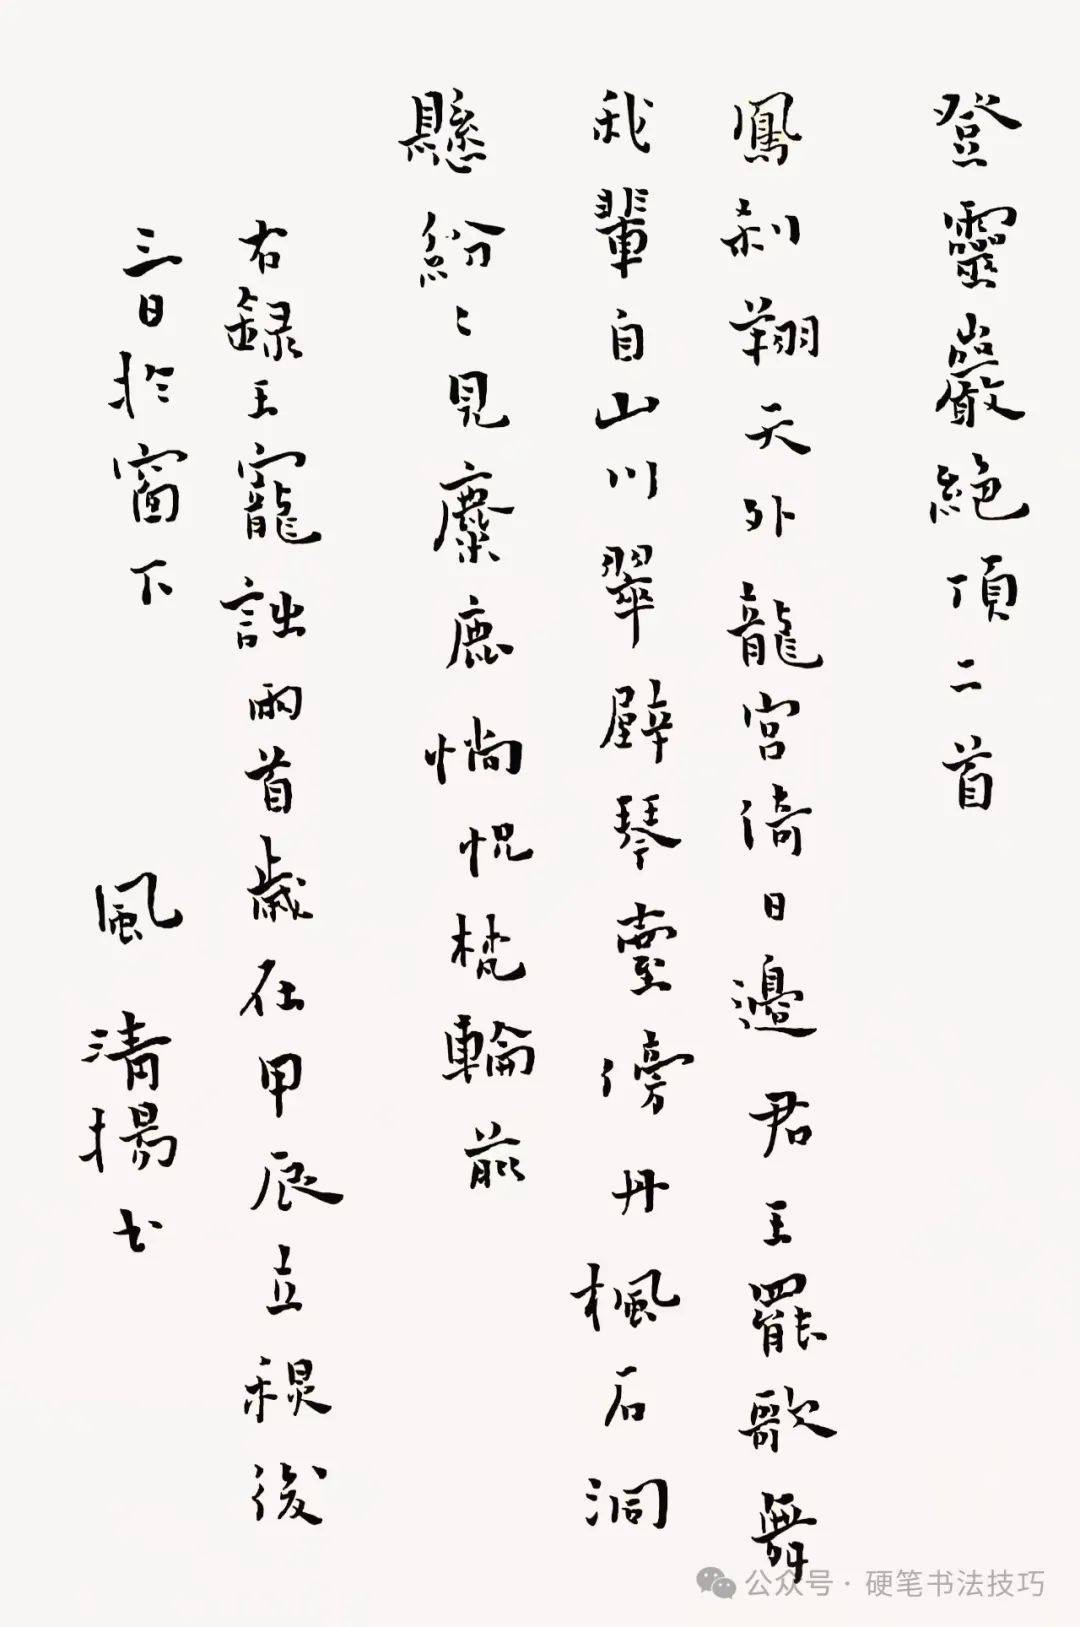 登靈巖絕頂二首
鳳刹翔天外龍宮倚日邊君王罷歌舞
我輩自山川翠壁琴臺傍丹楓石洞
懸紛〻見麋鹿惝怳梵輪前
右録王寵詩兩首歲在甲辰立稷後
三日於窗下
風清揚書
公众号·硬笔书法技巧